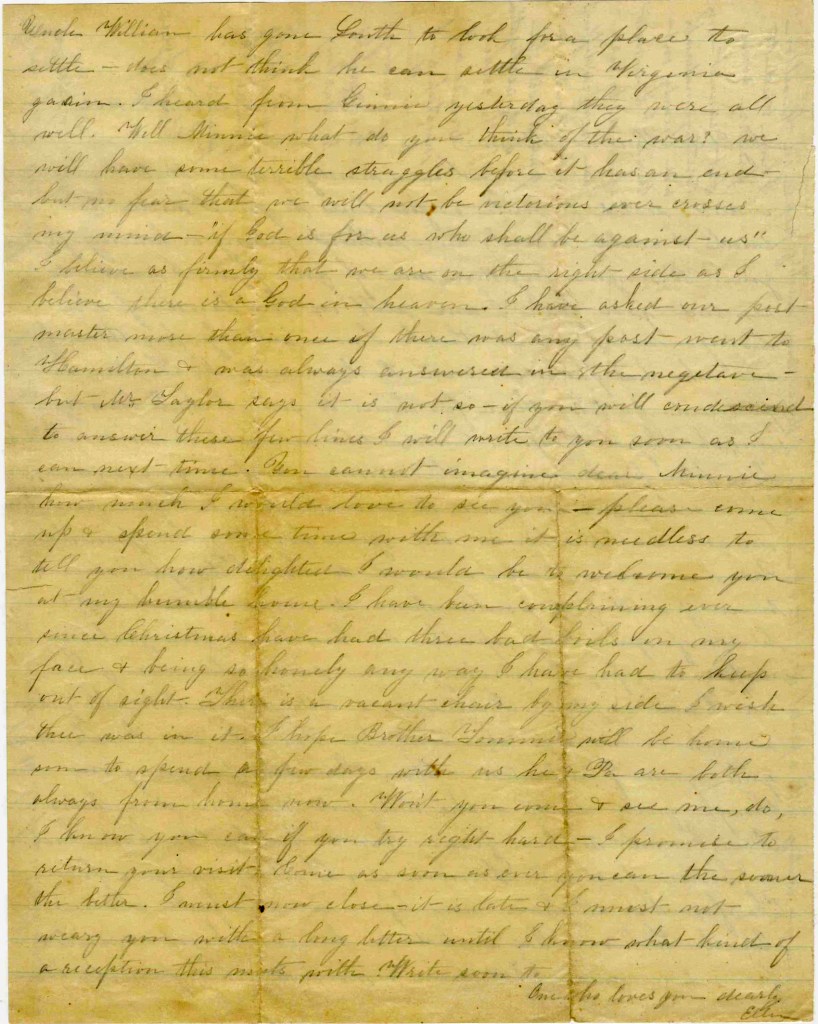 Uncle William has gone South to look for a place to
settle - does not think he can settle in Virginia
gaain. I heard from Ginnie yesterday they were all
well. Well Minnie what do you think of the war? we
will have some terrible struggles before it has an end -
but no fear that we will not be victorious ever crosses
my mind - "if God is for us who shall be against us"
I believe as firmly that we are on the right side as I
believe there is a God in heaven. I have asked our post
master more than once if there was any post went to
Hamilton & was always answered in the negetave -
but Mr Taylor says it is not so - if you will condescend
to answer these few lines I will write to you soon as I
can next time. You cannot imagine dear Minnie
how much I would love to see you - please come
up & spend some time with me it is needless to
tell you how delighted I would be to welcome you
at my humble home. I have been complaining ever
since Christmas have had three bad boils on my
face & being so homely any way I have had to keep
out of sight. There is a vacant chair by my side I wish
thee was in it. I hope Brother Tommie will be home
son to spend a few days with us he & Pa are both
always from home now. Wont you come & see me, do,
I know you can if you try right hard - I promise to
return your visit. Come as soon as ever you can the sooner
the better. I must now close - it is late & I must not
weary you with a long letter until I know what kind of
a reception this meets with. Write soon to
One who loves you dearly
Ellen